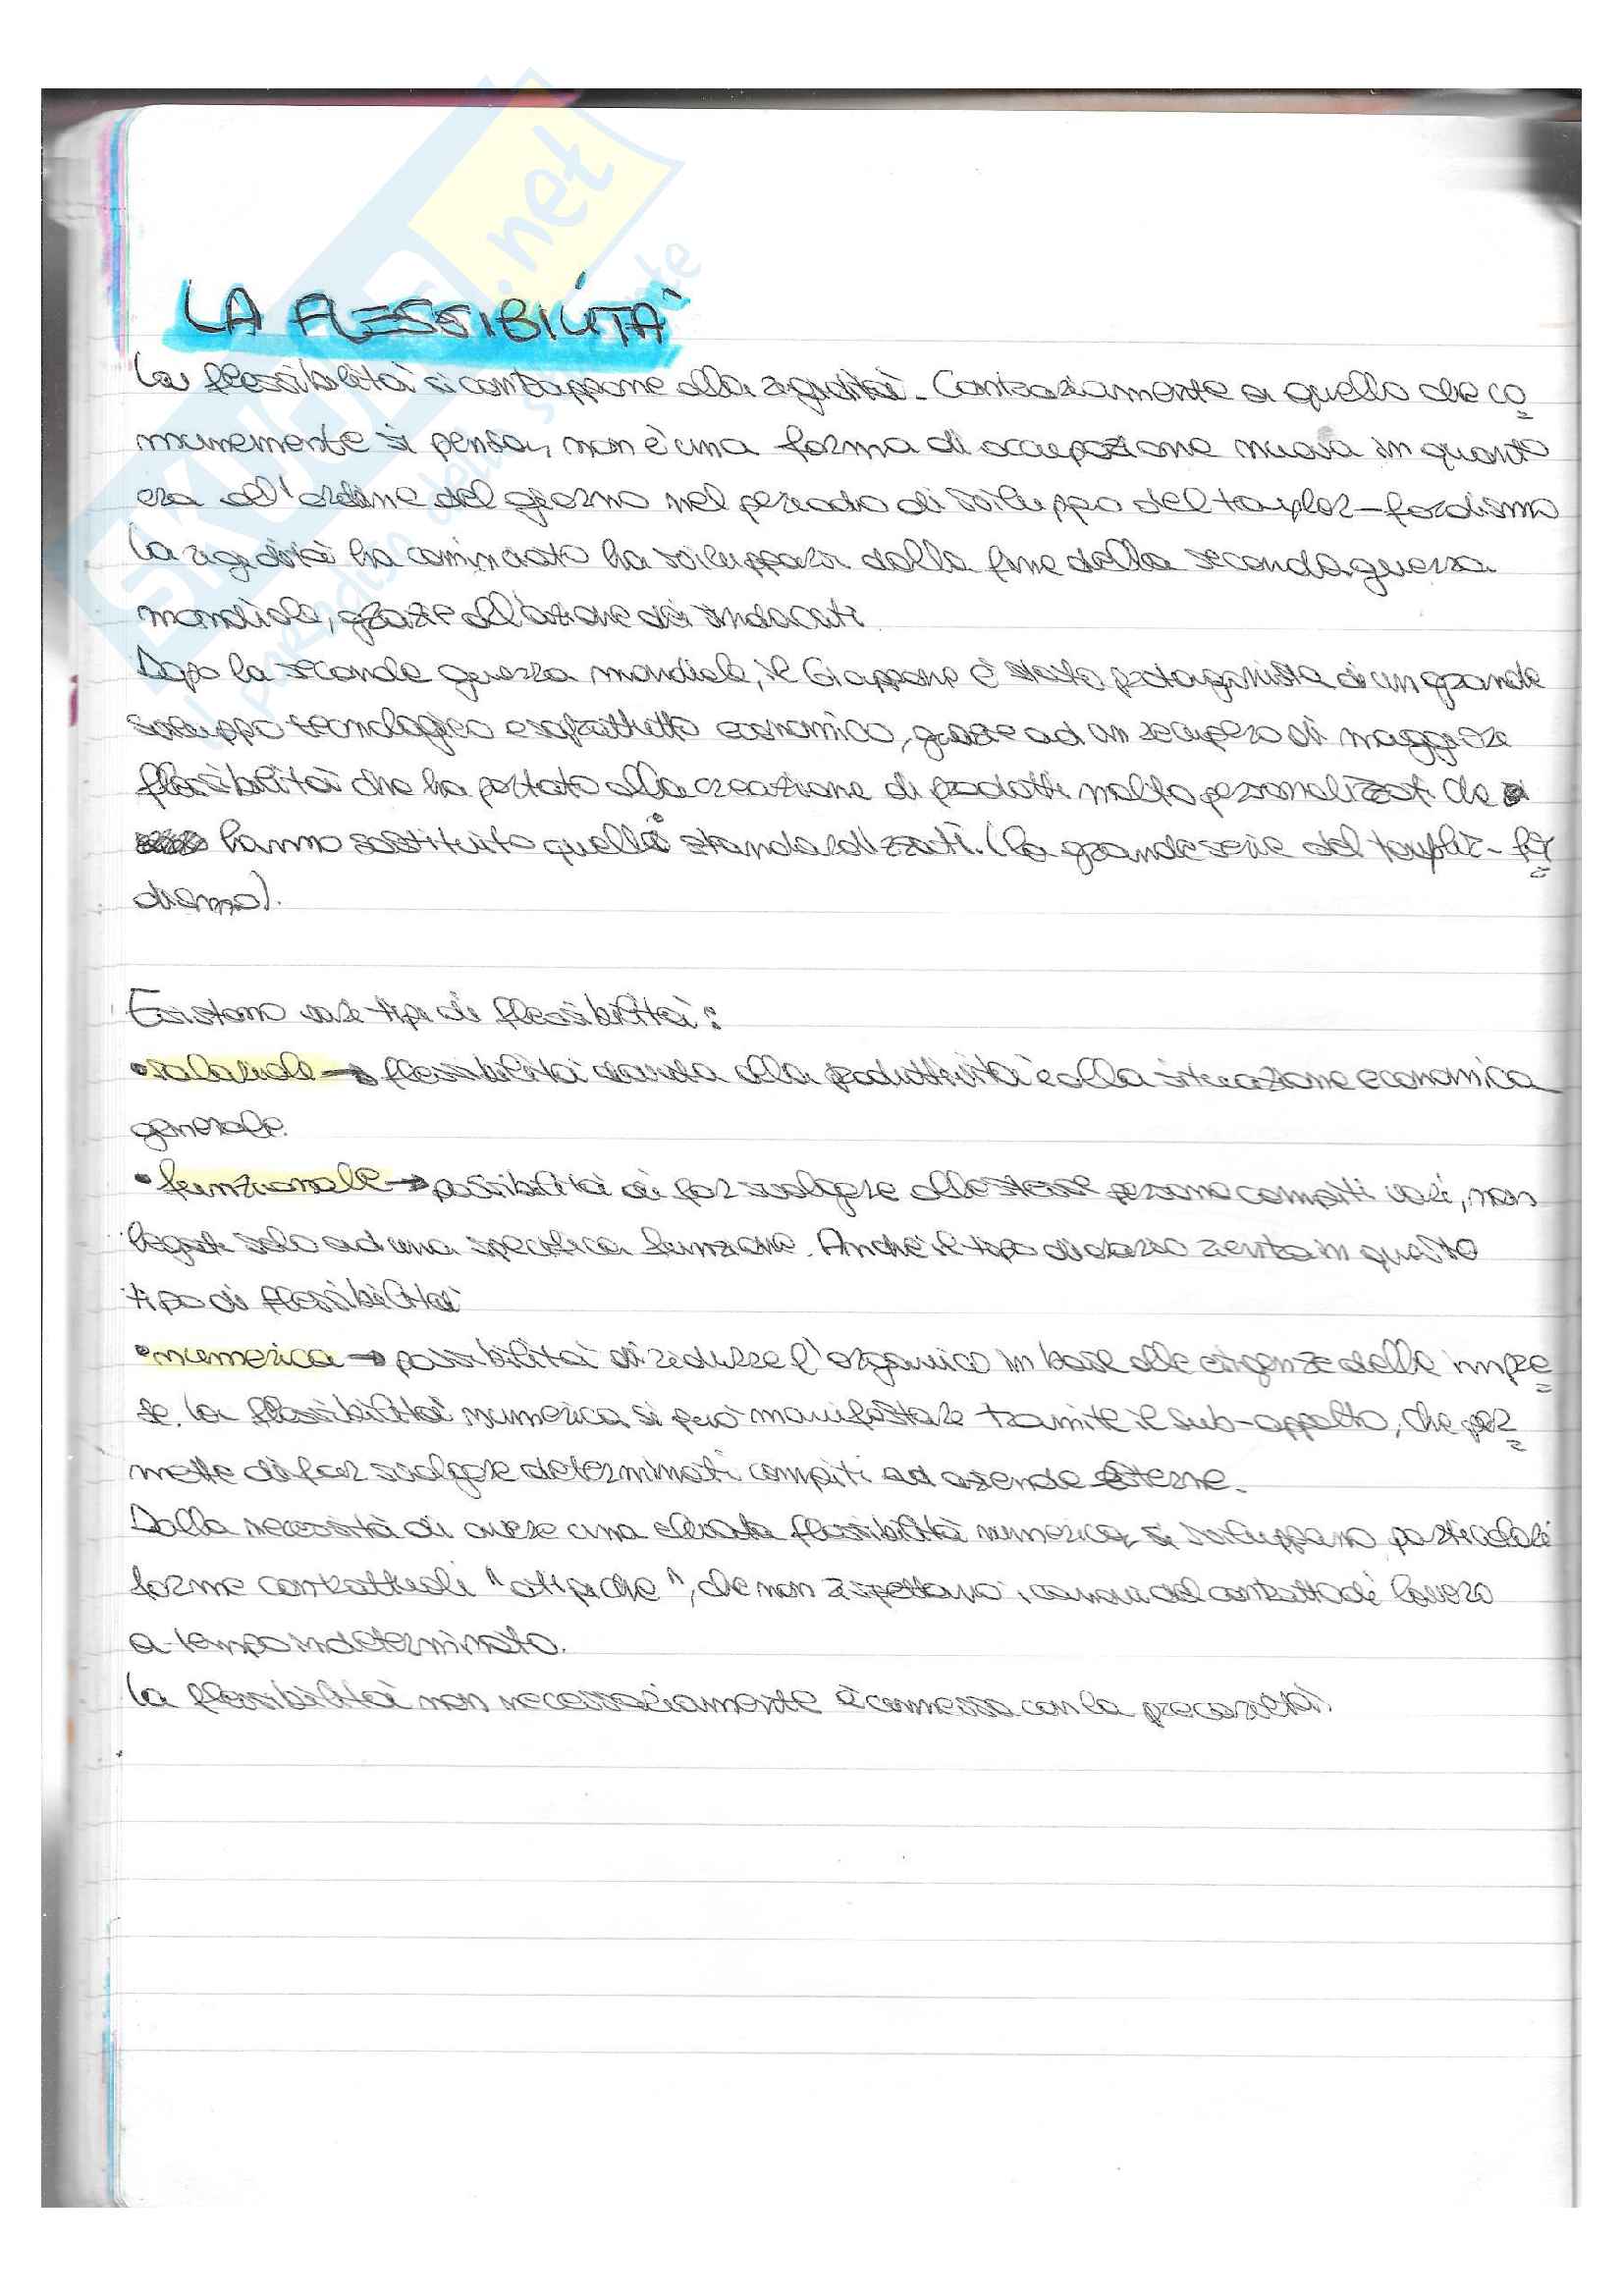 LA FLESSIBILITA'
La flessibilità si contrappone alla rigidità. Contrariamente a quello che co
munemente si pensa, non è una forma di occupazione nuova in quanto
era all'ordine del giorno nel periodo di sviluppo del taylor-fordismo
La rigidità ha cominciato ha svilupparsi dalla fine della seconda guerra
mondiale, grazie all'azione dei sindacati.
Dopo la seconda guerra mondiale, il Giappone è stato protagonista di un grande
sviluppo tecnologico e soprattutto economico, grazie ad un recupero di maggiore
flessibilità che ha portato alla creazione di prodotti molto personalizzati che
hanno sostituito quelli standardizzati. (la grande serie del taylor-for
dismo).
Esistono vari tipi di flessibilità:
•salariale → flessibilità dovuta alla produttività e alla situazione economica
generale.
•funzionale → possibilità di far svolgere alle stesse persone compiti vari, non
legati solo ad una specifica funzione. Anche il tipo di orario rientra in questo
tipo di flessibilità
•numerica → possibilità di ridurre l'organico in base alle esigenze delle impre
se. La flessibilità numerica si può manifestare tramite il sub-appalto, che per
mette di far svolgere determinati compiti ad aziende esterne.
Dalla necessità di avere una elevata flessibilità numerica si sviluppano particolari
forme contrattuali "atipiche", che non rispettano i canoni del contratto di lavoro
a tempo indeterminato.
La flessibilità non necessariamente è connessa con la precarietà.
SKUOLA.net